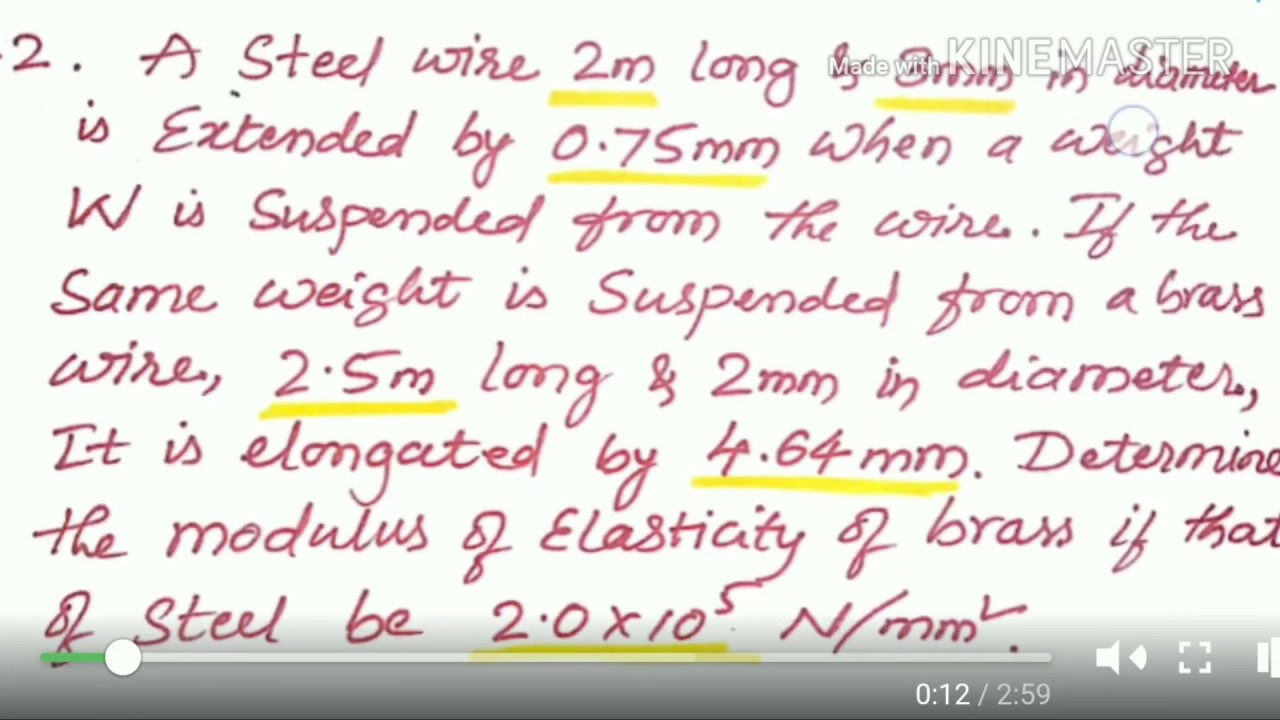 2. A Steel wire 2m long & 3mm in diameter
Made with KINEMASTER
is Extended by 0.75mm when a weight
W is Suspended from the wire. If the
Same weight is Suspended from a brass
wire, 2.5m long & 2mm in diameter,
It is elongated by 4.64mm. Determine
the modulus of Elasticity of brass if that
of Steel be 2.0×10⁵ N/mm².
0:12 / 2:59